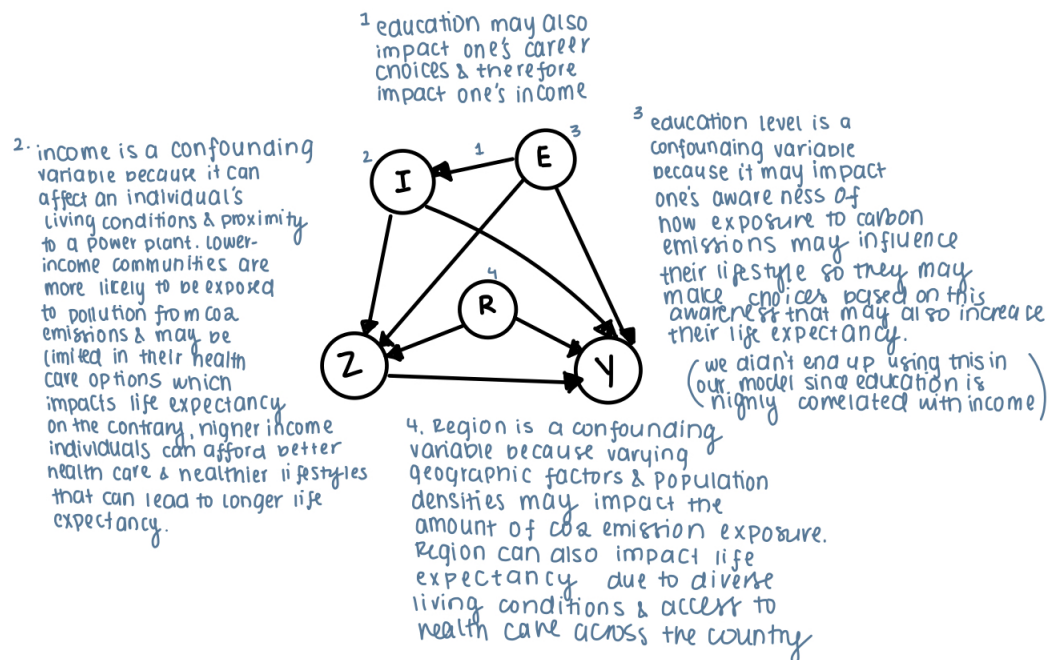 1 education may also
impact one's career
choices & therefore
impact one's income
2. income is a confounding
variable because it can
affect an individual's
living conditions & proximity
to a power plant. Lower-
income communities are
more likely to be exposed
to pollution from co2
emissions & may be
limited in their health
care options which
impacts life expectancy
on the contrary, higher income
individuals can afford better
health care & healthier lifestyles
that can lead to longer life
expectancy.
3 education level is a
confounding variable
because it may impact
one's awareness of
how exposure to carbon
emissions may influence
their lifestyle so they may
make choices based on this
awareness that may also increase
their life expectancy.
(we didn't end up using this in
our model since education is
highly correlated with income)
2
1
3
I
E
4
R
Z
Y
4. Region is a confounding
variable because varying
geographic factors & population
densities may impact the
amount of co2 emission exposure.
Region can also impact life
expectancy due to diverse
living conditions & access to
health care across the country